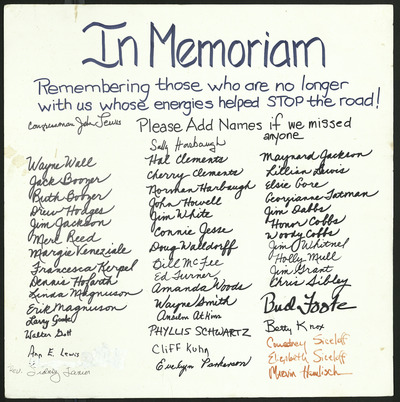 In Memoriam
Remembering those who are no longer
with us whose energies helped STOP the road!
Congressman John Lewis
Please Add Names if we missed
anyone
Wayne Wall
Jack Boozer
Ruth Boozer
Drew Hodges
Jim Jackson
Merl Reed
Margie Veneziale
Francesca Kerpel
Dennis Hofarth
Linda Magnuson
Erik Magnuson
Larry
Walter
Ann E. Lewis
Rev.
Sally Harbaugh
Hal Clements
Cherry Clements
Norman Harbaugh
John Howell
Jim White
Connie Jesse
Doug Waldorff
Bill McFee
Ed Turner
Amanda Woods
Wayne Smith
Anselm Atkins
PHYLLIS SCHWARTZ
Cliff Kuhn
Evelyn Parkerson
Maynard Jackson
Lillian Lewis
Elsie Gore
Georgianne Tatman
Jim Dabbs
Honor Cobbs
Woody Cobbs
Jim Whitnel
Holly Mull
Jim Grant
Chris Sibley
Bud Foote
Betty Knox
Courtney Siceloff
Elizabeth Siceloff